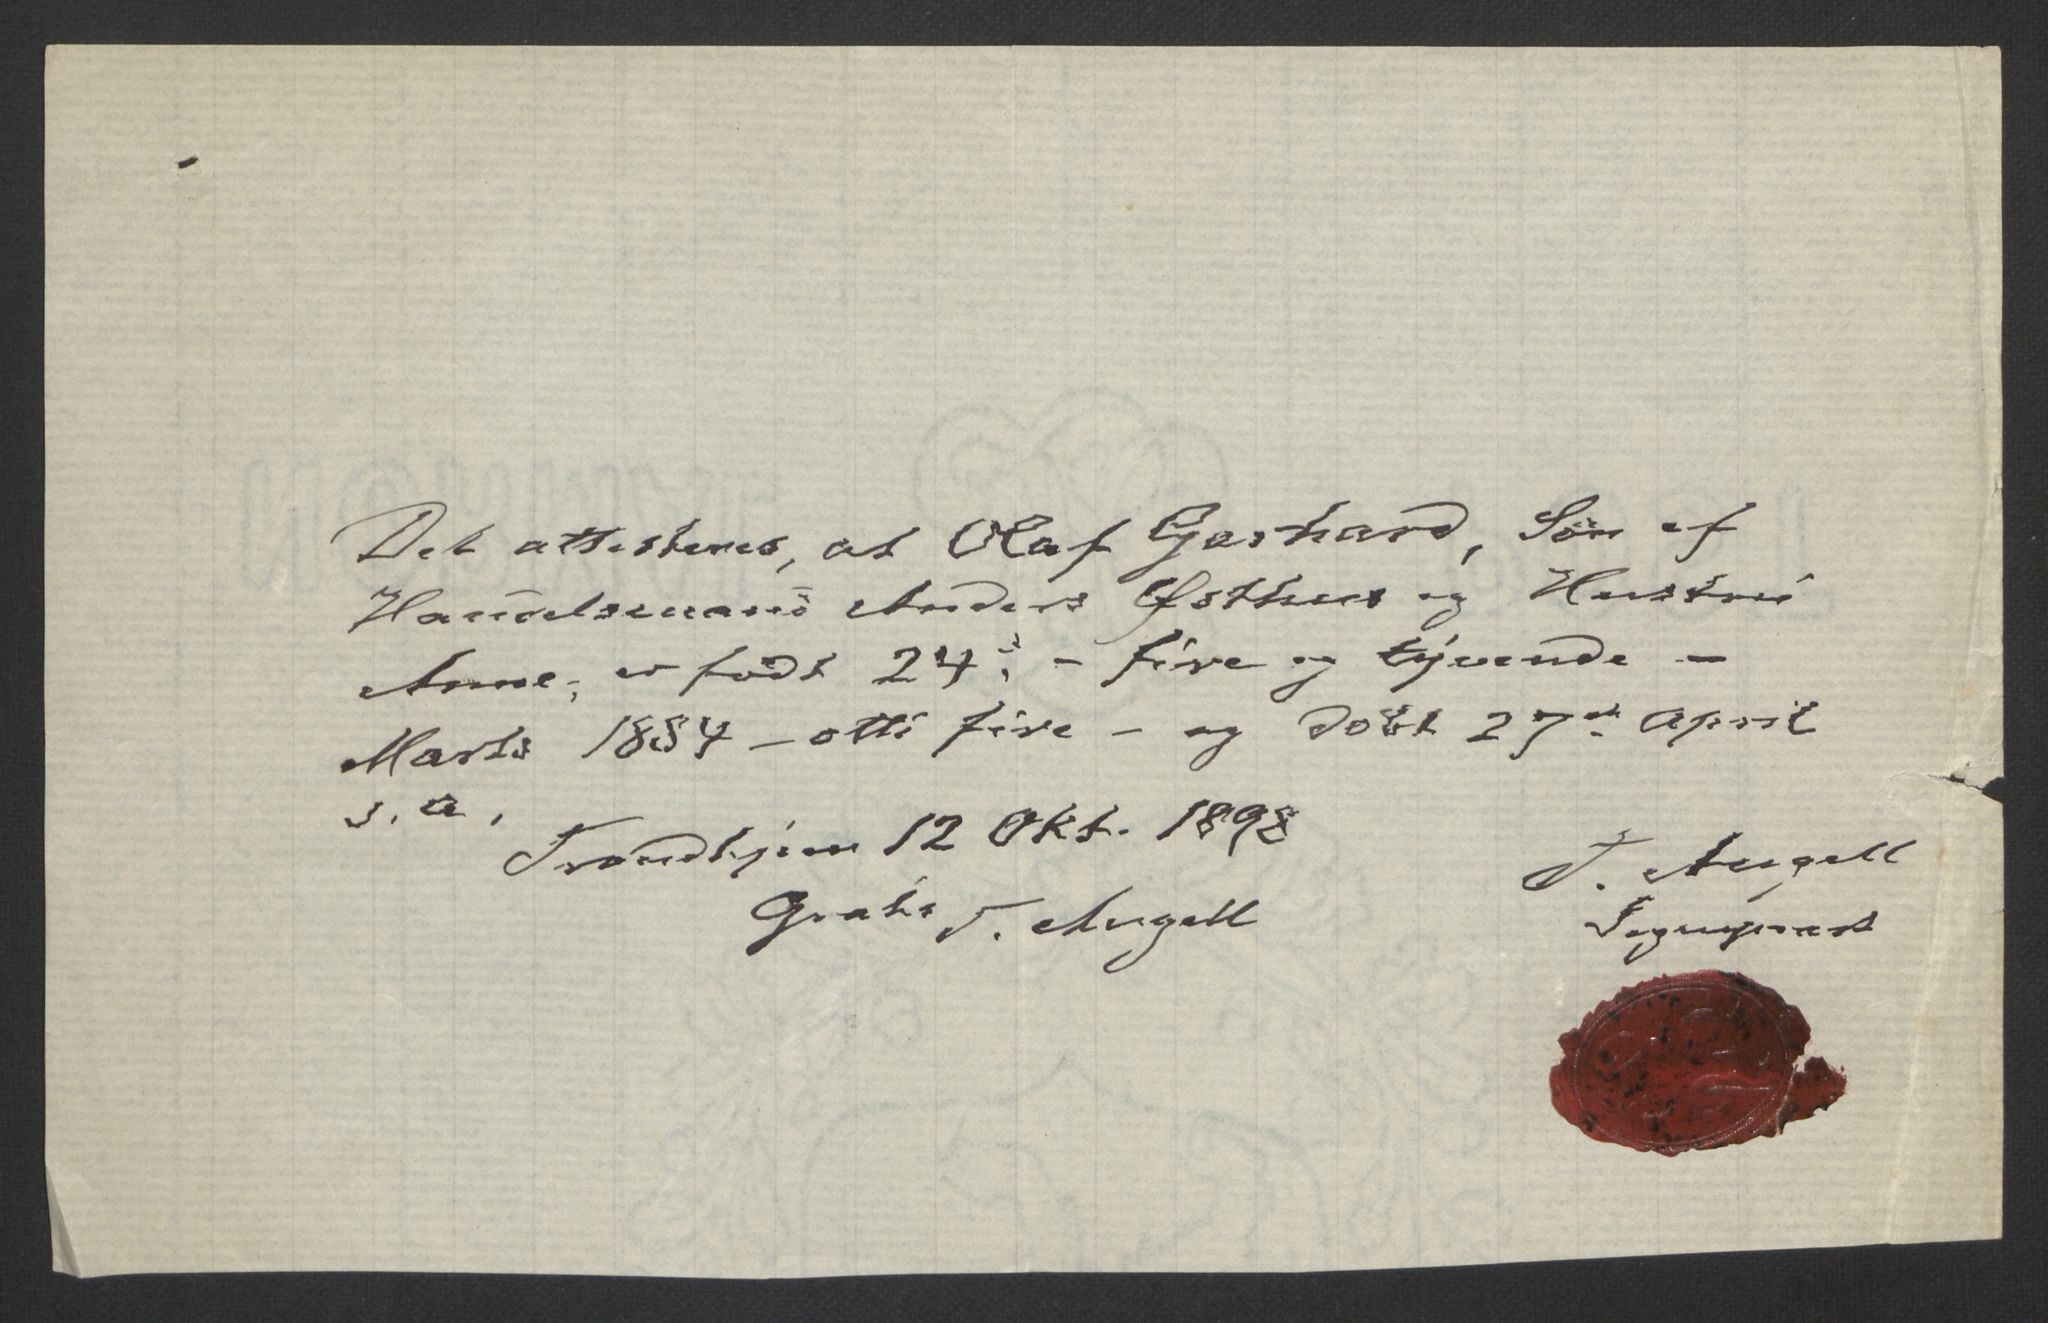 Det attesteres, at Olaf Gerhard, Sön af
Handelsmand Anders Østhus og Hustru
Anne, er födt 24: – fire og tyvende –
Marts 1884 – otti fire – og döbt 27de April
s. a.
Trondhjem 12 Okt. 1898
T. Angell
Gratis T. Angell
Sogneprest